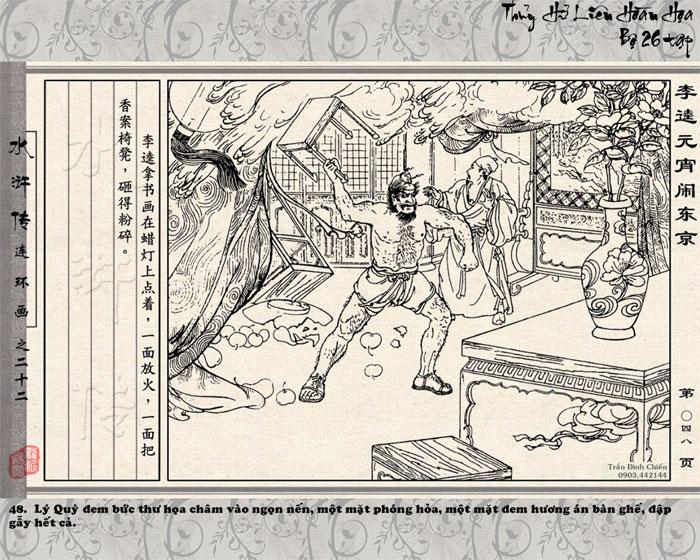 Thủy Hử Liên Hoàn Họa
Bộ 26 tập
李逵元宵闹东京
第〇四八页
李逵拿书画在蜡灯上点着，一面放火，一面把
香案椅凳，砸得粉碎。
水浒传
水浒传连环画之二十二
Trần Đình Chiến
0903.442144
48. Lý Quỳ đem bức thư họa châm vào ngọn nến, một mặt phóng hỏa, một mặt đem hương án bàn ghế, đập
gẫy hết cả.